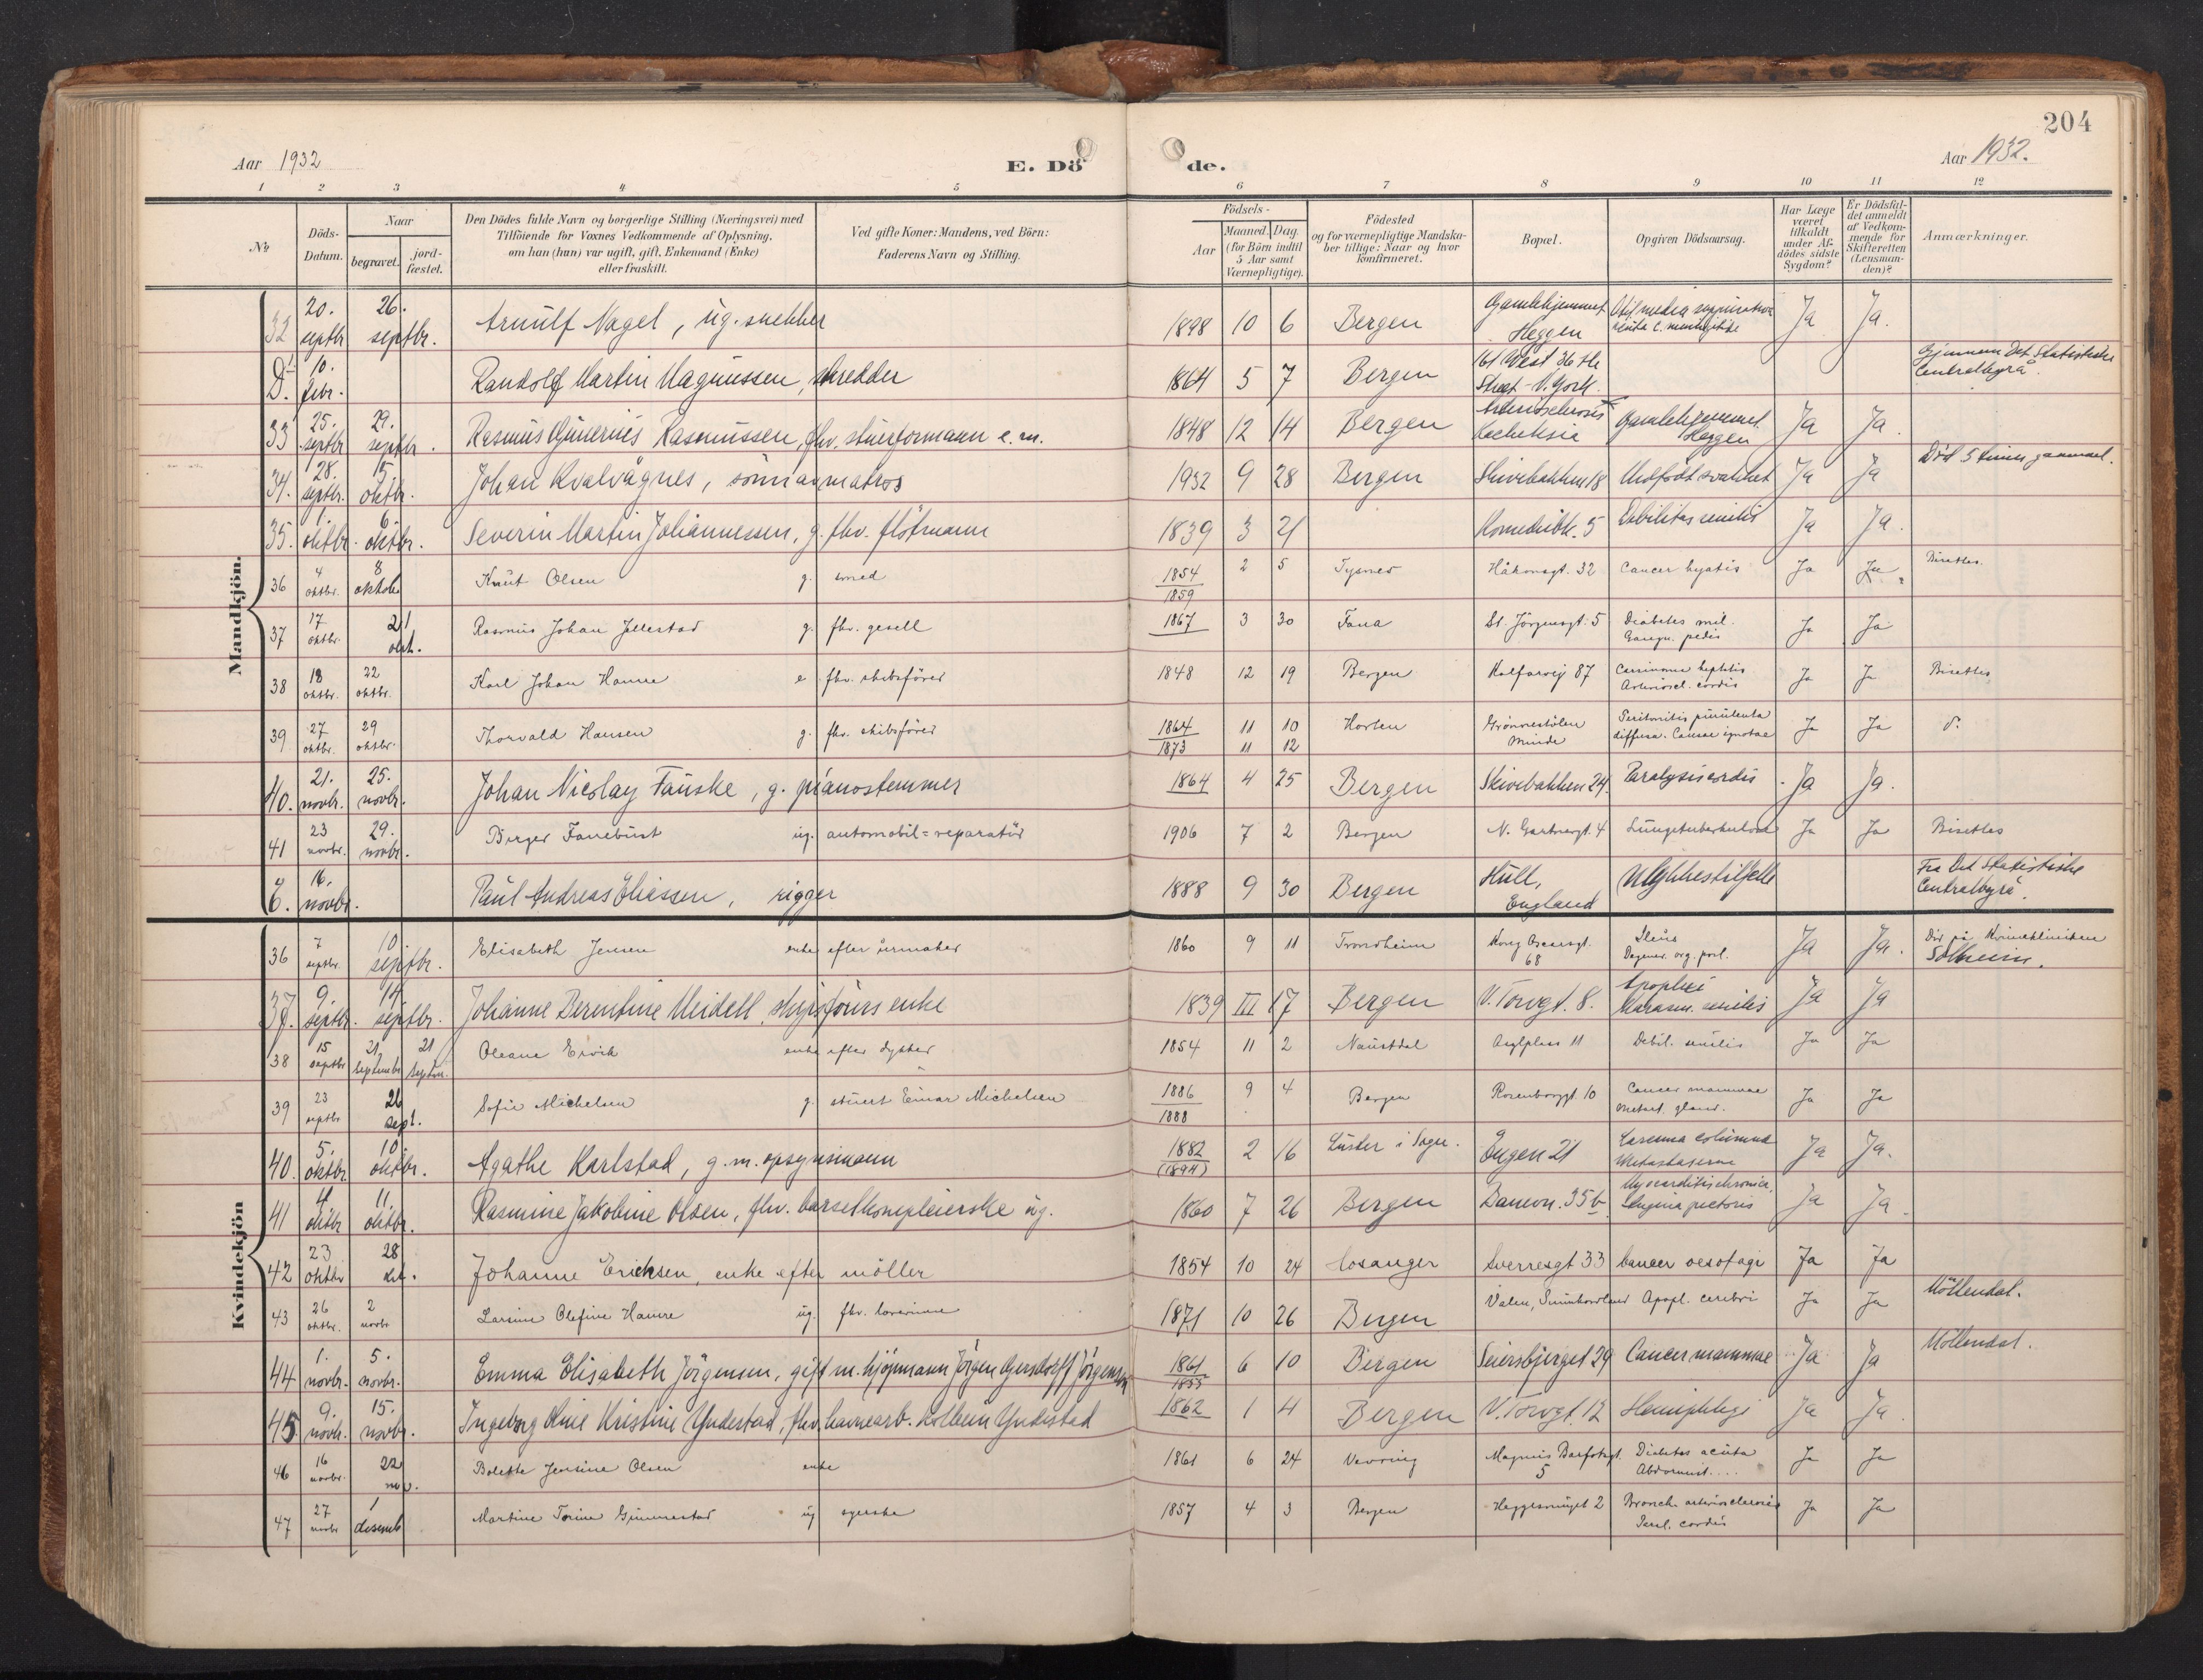 204
Aar 1932
E. Dö de.
Aar 1932.
1 2 3 4 5 6 7 8 9 10 11 12
No
Döds-Datum.
Naar
begravet.
jord-fæstet.
Den Dödes fulde Navn og borgerlige Stilling (Næringsvei) med
Tilföiende for Voxnes Vedkommende af Oplysning,
om han (hun) var ugift, gift, Enkemand (Enke)
eller fraskilt.
Ved gifte Koner: Mandens, ved Börn:
Faderens Navn og Stilling.
Födsels-
Aar
Maaned. Dag.
(for Börn indtil
5 Aar samt
Værnepligtige).
Födested
og for værnepligtige Mandska-
ber tillige: Naar og hvor
konfirmeret.
Bopæl.
Opgiven Dödsaarsag.
Har Læge
været
tilkaldt
under Af-
dödes sidste
Sygdom?
Er Dödsfal-
det anmeldt
af Vedkom-
mende for
Skifteretten
(Lensman-
den)?
Anmærkninger.
Mandkjön.
32 20. septbr 26. septbr. Arnulf Nagel, ug. snekker 1898 10 6 Bergen Gamlehjemmet Heggen Otit media Ja Ja.
D. 10. febr. Randolf Martin Magnussen, skredder 1864 5 7 Bergen 161 West 36 the Street - N. York. Gjennem Det Statistiske Centralbyrå.
33 25. septbr 29. septbr. Rasmus Rasmussen, fhv. stuerformann e.m. 1848 12 14 Bergen Arteriosclerosis Kacheksia Gamlehjemmet Heggen Ja Ja.
34. 28. septbr. 5 oktbr. Johan Kvalvågnes, sönn av matros 1932 9 28 Bergen Skivebakken 18 Medfödt svakhet Ja Ja Död 5 timer gammel.
35. 1. oktbr. 6. oktbr. Severin Martin Johannessen, g. fhv. flötmann 1839 3 21 Komediebk. 5 Debilitas senilis Ja Ja.
36 4 oktbr. 8 oktob Knut Olsen g. smed 1854 1859 2 5 Tysnes Håkonsgt. 32 Cancer Ja Ja Bisettes.
37 17 oktbr. 21 okt. Rasmus Johan Jellestad g. fhv. gesell 1867 3 30 Fana St. Jörgensgt. 5 Diabetes mil. Gangr. pedis Ja Ja
38 18 oktbr. 22 oktbr. Karl Johan Hamre e. fhv. skibsförer 1848 12 19 Bergen Kalfarvej 87 Carcinoma Arteriöscl. cordis Ja Ja Bisettes
39 27 oktbr. 29 oktbr. Thorvald Hansen g. fhv. skibsförer 1864 1873 11 10 11 12 Horten Grönnestölen Minde Peritonitis purulenta diffusa. Causae ignotae Ja Ja d.
40. 21. novbr. 25. novbr. Johan Nicolay Fauske, g. pianostemmer 1864 4 25 Bergen Skivebakken 24 Paralysis cordis Ja Ja.
41 23 novbr. 29. novbr. Birger Fanebust ug. automobil=reparatör 1906 7 2 Bergen N. Gartnergt. 4 Lungetuberkulose Ja Ja Bisettes
E. 16. novbr. Paul Andreas Eliassen, rigger 1888 9 30 Bergen Hull, England Ulykkestilfelle Fra Det Statistiske Centralbyrå.
Kvindekjön
36 7 septbr. 10. septbr. Elisabeth Jensen enke efter urmaker 1860 9 11 Trondheim Kong Oscarsgt. 68 Ileus Degener. org. port. Ja Ja. Död på Kvinneklinikken Solheim.
37. 9. septbr. 14. septbr. Johanne Berentine Meidell, skipsförers enke 1839 III 17 Bergen V. Torvgt. 8. Apoplexi Marasm. senilis Ja Ja
38 15 septbr 21 septembr 21 septbr. Oleane Ervik enke efter dykker 1854 11 2 Naustdal Asylplass 11 Debil. senilis Ja Ja
39 23 septbr 26 sept. Sofie Michelsen g. stuert Einar Michelsen 1886 1888 9 4 Bergen Rosenborggt 10 Cancer mammae metast. gland. Ja Ja
40. 5. oktbr 10. oktbr. Agathe Karlstad, g. m. opsynsmann 1882 (1894) 2 16 Luster i Sogn. Engen 21 columna Metastaserne Ja Ja.
41 4. oktbr 11. oktbr. Rasmine Jakobine Olsen, fhv. barselkonepleierske ug. 1860 7 26 Bergen Damsv. 35 b Myocarditis chronica, Angina pectoris Ja Ja.
42 23 oktbr 28 okt. Johanne Ericksen, enke efter möller 1854 10 24 Hosanger Sverresgt 33 Cancer oesofagi Ja Ja
43 26 oktbr. 2 novbr Larsine Olefine Hamre ug. fhv. lærerinne 1871 10 26 Bergen Valen, Sunnhordland Apopl. cerebri Ja Ja Möllendal.
44 1. novbr. 5. novbr. Emma Elisabeth Jörgensen, gift m. kjöpmann Jörgen Gersdorff Jörgensen 1861 1855 6 10 Bergen Seiersbjerget 29 Cancer mammae Ja Ja Möllendal.
45 9. novbr. 15. novbr. Ingeborg Oline Kristine Yndestad, fhv. havnearb. Kolbein Yndestad 1862 1 4 Bergen V. Torvgt. 12 Hemiplegi Ja Ja
46 16 novbr. 22 nov. Bolette Jensine Olsen enke 1861 6 24 Vevring Magnus Barfotsgt. 5 Diabetes acuta Ja Ja
47 27 novbr 1 desemb Martine Torine Gimmestad ug syerske 1857 4 3 Bergen Heggesmuget 2 Bronch. arteriosclerosis Paral. cordis Ja Ja